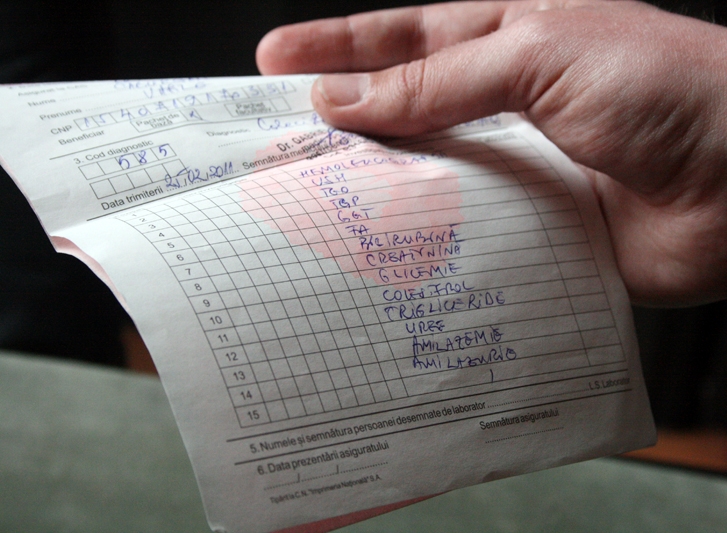 Nume
Prenume
CNP
Beneficiar
Pachet de bază
Pachet facultativ
Diagnostic
3. Cod diagnostic
585
Data trimiterii 25,02,2011
Semnătura
1 HEMOLEUCOGRAMA
2 VSH
3 TGO
4 TGP
5 GGT
6 FA
7 BILIRUBINĂ
8 CREATININA
9 GLICEMIE
10 COLESTROL
11 TRIGLICERIDE
12 UREE
13 AMILAZEMIE
14 AMILAZURIE
15
L.S. Laborator
5. Numele și semnătura persoanei desemnate de laborator
Semnătura asiguratului
6. Data prezentării asiguratului
Tipărit la C.N. "Imprimeria Națională" S.A.